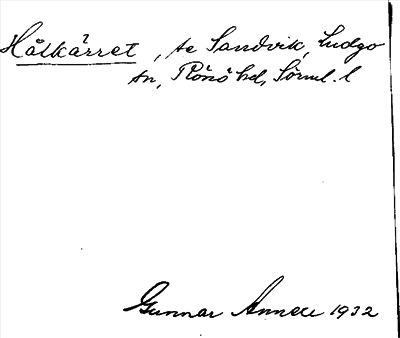 Hålkärret, te Sandvik, Ludgo
sn, Rönö hd, Sörml. l
Gunnar Annell 1932